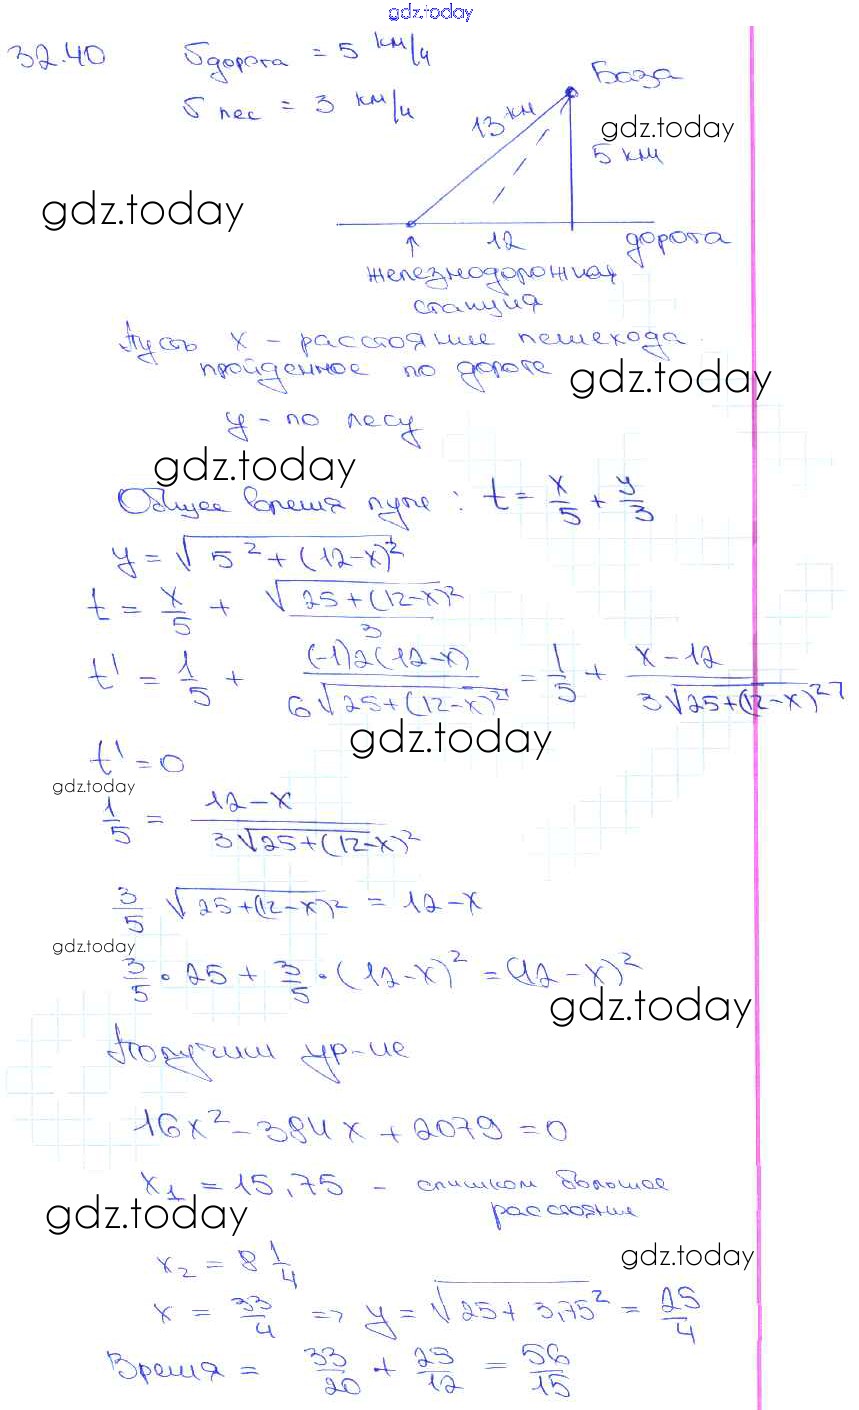 gdz.today
32.40 υдорога = 5 км/ч
υ лес = 3 км/ч
База
13 км
gdz.today
5 км
gdz.today
12
дорога
↑
железнодорожная
станция
Пусть x - расстояние пешехода
пройденное по дороге
gdz.today
y - по лесу
gdz.today
Общее время пути: t = x/5 + y/3
y = √(5² + (12-x)²)
t = x/5 + √(25+(12-x)²)/3
t' = 1/5 + (-1)2(12-x)/(6√(25+(12-x)²)) = 1/5 + (x-12)/(3√(25+(12-x)²))
gdz.today
t' = 0
gdz.today
1/5 = (12-x)/(3√(25+(12-x)²))
3/5 √(25+(12-x)²) = 12-x
gdz.today
3/5 · 25 + 3/5 · (12-x)² = (12-x)²
gdz.today
Получим ур-ие
16x² - 384x + 2079 = 0
x₁ = 15,75 - слишком большое
расстояние
gdz.today
x₂ = 8 1/4
gdz.today
x = 33/4 => y = √(25 + 3,75²) = 25/4
Время = 33/20 + 25/12 = 56/15